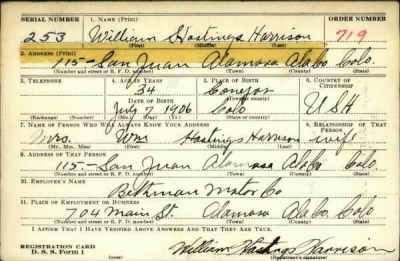 SERIAL NUMBER 1. NAME (Print) ORDER NUMBER
253 William Hastings Harrison 719
(First) (Middle) (Last)
2. ADDRESS (Print)
115- San Juan Alamosa Ala Co. Colo.
(Number and street or R. F. D. number) (Town) (County) (State)
3. TELEPHONE 4. AGE IN YEARS 5. PLACE OF BIRTH 6. COUNTRY OF CITIZENSHIP
34 Conejos
DATE OF BIRTH (Town or county)
July 7 1906 Colo USA
(Exchange) (Number) (Mo.) (Day) (Yr.) (State or country)
7. NAME OF PERSON WHO WILL ALWAYS KNOW YOUR ADDRESS 8. RELATIONSHIP OF THAT PERSON
Mrs. Wm Hastings Harrison wife
(Mr., Mrs., Miss) (First) (Middle) (Last)
9. ADDRESS OF THAT PERSON
115- San Juan Alamosa Ala Co. Colo
(Number and street or R. F. D. number) (Town) (County) (State)
10. EMPLOYER'S NAME
Motor Co
11. PLACE OF EMPLOYMENT OR BUSINESS
704 Main St. Alamosa Ala Co. Colo
(Number and street or R. F. D. number) (Town) (County) (State)
I AFFIRM THAT I HAVE VERIFIED ABOVE ANSWERS AND THAT THEY ARE TRUE.
REGISTRATION CARD
D. S. S. Form 1 William Hastings Harrison
(Registrant's signature)